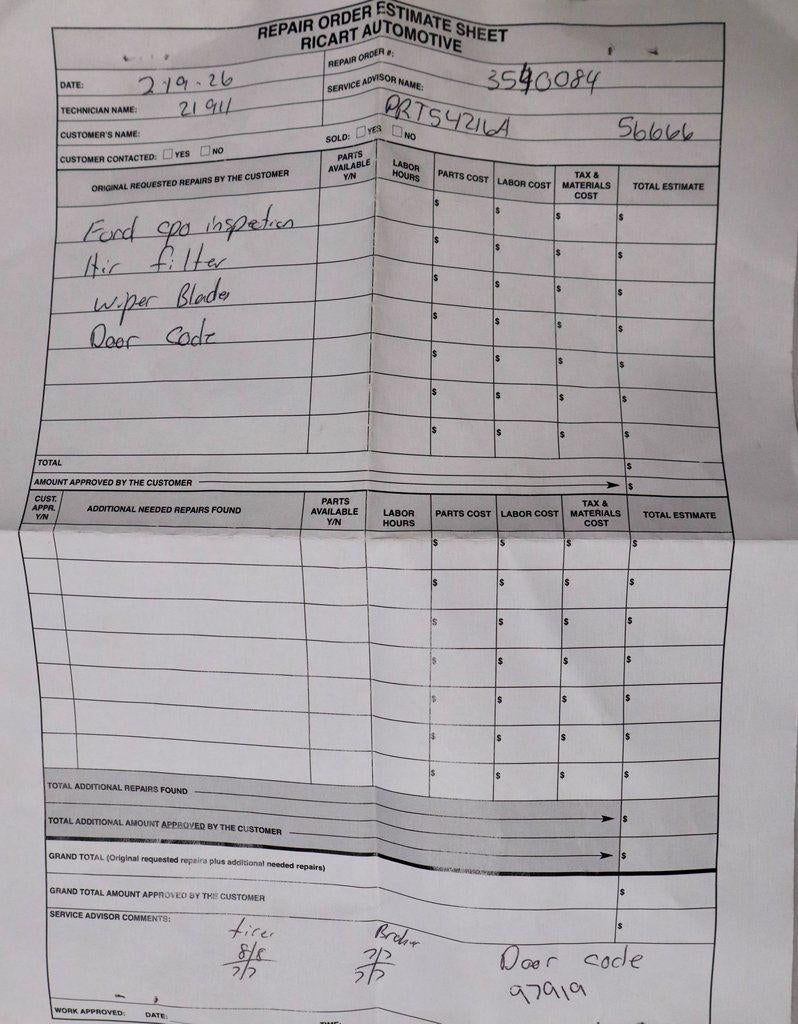 REPAIR ORDER ESTIMATE SHEET
RICART AUTOMOTIVE
DATE: 2-19-26
REPAIR ORDER #: 3540084
TECHNICIAN NAME: 21911
SERVICE ADVISOR NAME: PRT54216A 56666
CUSTOMER'S NAME:
CUSTOMER CONTACTED: YES NO
SOLD: YES NO
ORIGINAL REQUESTED REPAIRS BY THE CUSTOMER PARTS AVAILABLE Y/N LABOR HOURS PARTS COST LABOR COST TAX & MATERIALS COST TOTAL ESTIMATE
Ford cpo inspection $ $ $ $
Air filter $ $ $ $
wiper Blades $ $ $ $
Door Code $ $ $ $
$ $ $ $
$ $ $ $
$ $ $ $
TOTAL $
AMOUNT APPROVED BY THE CUSTOMER $
CUST. APPR. Y/N ADDITIONAL NEEDED REPAIRS FOUND PARTS AVAILABLE Y/N LABOR HOURS PARTS COST LABOR COST TAX & MATERIALS COST TOTAL ESTIMATE
$ $ $ $
$ $ $ $
$ $ $ $
$ $ $ $
$ $ $ $
$ $ $ $
$ $ $ $
TOTAL ADDITIONAL REPAIRS FOUND $
TOTAL ADDITIONAL AMOUNT APPROVED BY THE CUSTOMER $
GRAND TOTAL (Original requested repairs plus additional needed repairs) $
GRAND TOTAL AMOUNT APPROVED BY THE CUSTOMER $
SERVICE ADVISOR COMMENTS:
tires
8/8 7/7
7/7 7/7
Door code
97919
WORK APPROVED: DATE: TIME: